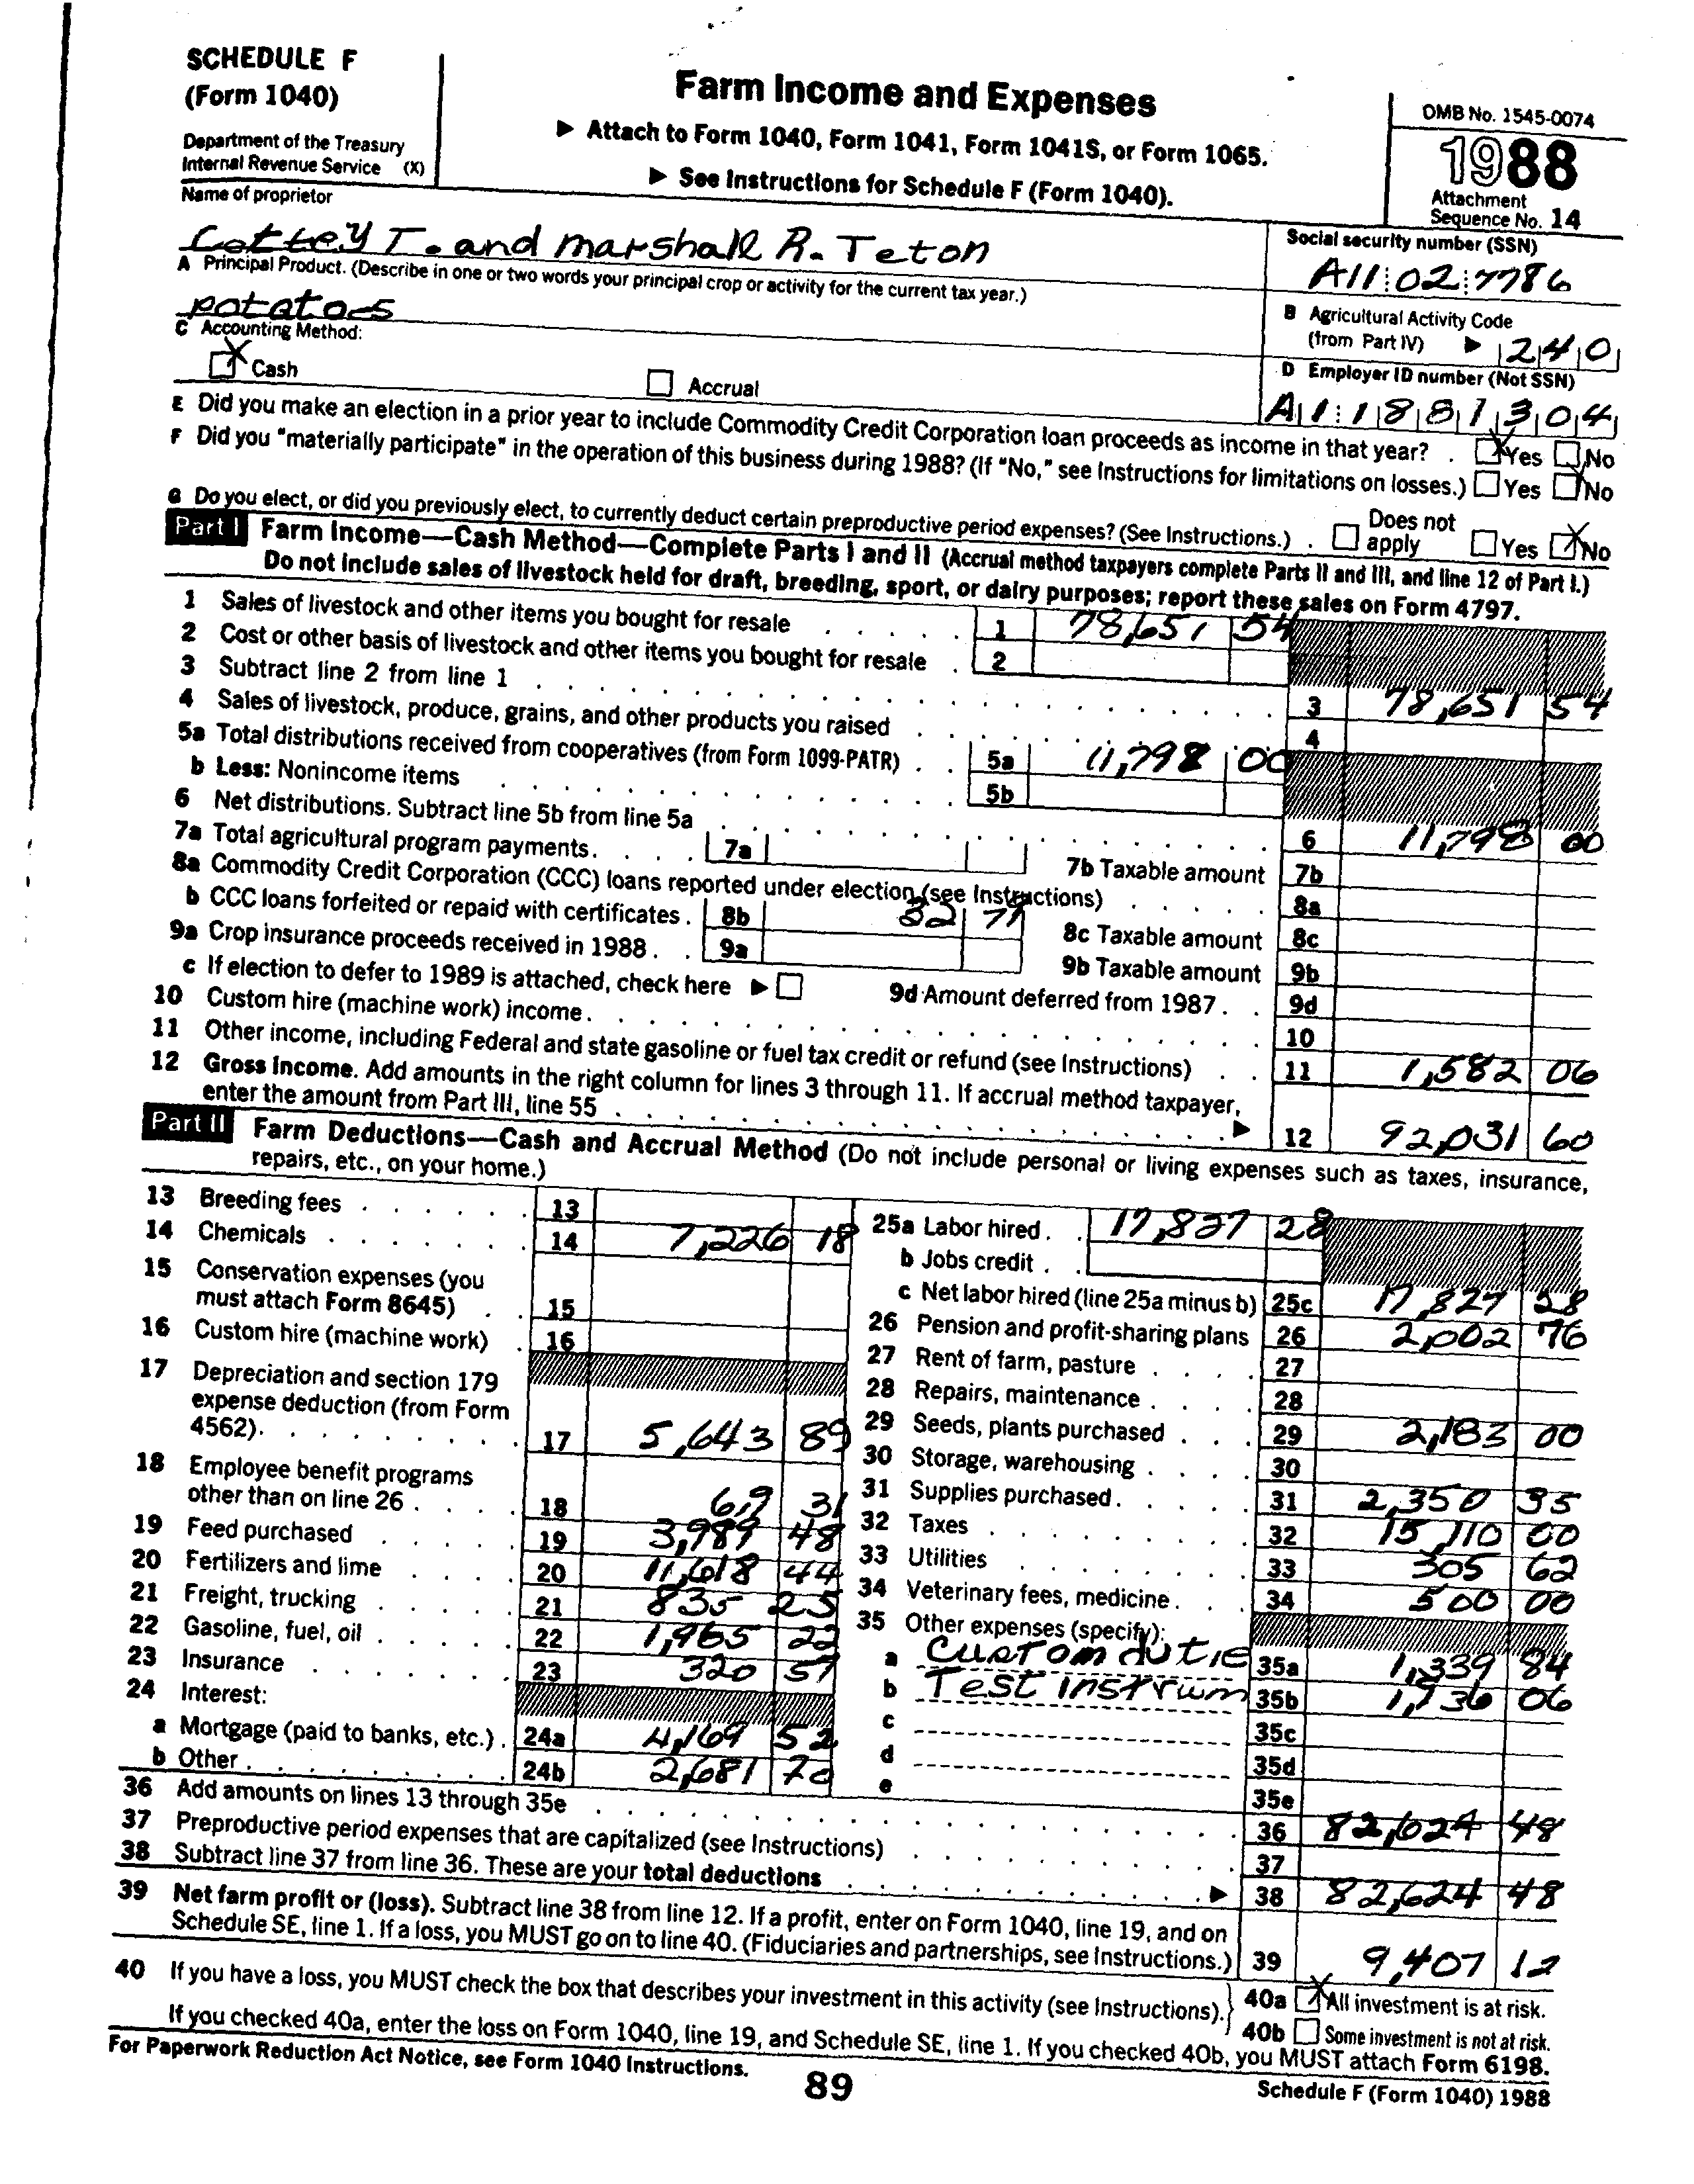 SCHEDULE F
(Form 1040)
Department of the Treasury
Internal Revenue Service (X)
Farm Income and Expenses
▶ Attach to Form 1040, Form 1041, Form 1041S, or Form 1065.
▶ See Instructions for Schedule F (Form 1040).
OMB No. 1545-0074
1988
Attachment
Sequence No. 14
Name of proprietor
Cottey T. and marshall R. Teton
Social security number (SSN)
A11 02 7786
A Principal Product. (Describe in one or two words your principal crop or activity for the current tax year.)
potatos
B Agricultural Activity Code
(from Part IV) ▶ 240
C Accounting Method:
X Cash Accrual
D Employer ID number (Not SSN)
A1 1881304
E Did you make an election in a prior year to include Commodity Credit Corporation loan proceeds as income in that year? . X Yes No
F Did you "materially participate" in the operation of this business during 1988? (If "No," see Instructions for limitations on losses.) Yes X No
G Do you elect, or did you previously elect, to currently deduct certain preproductive period expenses? (See Instructions.) . Does not apply Yes X No
Part I Farm Income—Cash Method—Complete Parts I and II (Accrual method taxpayers complete Parts II and III, and line 12 of Part I.)
Do not include sales of livestock held for draft, breeding, sport, or dairy purposes; report these sales on Form 4797.
1 Sales of livestock and other items you bought for resale 1 78,651 54
2 Cost or other basis of livestock and other items you bought for resale 2
3 Subtract line 2 from line 1 3 78,651 54
4 Sales of livestock, produce, grains, and other products you raised 4
5a Total distributions received from cooperatives (from Form 1099-PATR) 5a 11,798 00
b Less: Nonincome items 5b
6 Net distributions. Subtract line 5b from line 5a 6 11,798 00
7a Total agricultural program payments. 7a 7b Taxable amount 7b
8a Commodity Credit Corporation (CCC) loans reported under election (see Instructions) 8a
b CCC loans forfeited or repaid with certificates . 8b 32 8c Taxable amount 8c
9a Crop insurance proceeds received in 1988 . 9a 9b Taxable amount 9b
c If election to defer to 1989 is attached, check here ▶ 9d Amount deferred from 1987 . 9d
10 Custom hire (machine work) income . 10
11 Other income, including Federal and state gasoline or fuel tax credit or refund (see Instructions) 11 1,582 06
12 Gross Income. Add amounts in the right column for lines 3 through 11. If accrual method taxpayer,
enter the amount from Part III, line 55 ▶ 12 92,031 60
Part II Farm Deductions—Cash and Accrual Method (Do not include personal or living expenses such as taxes, insurance,
repairs, etc., on your home.)
13 Breeding fees 13
14 Chemicals 14 7,226 18
15 Conservation expenses (you
must attach Form 8645) 15
16 Custom hire (machine work) 16
17 Depreciation and section 179
expense deduction (from Form
4562). 17 5,643 89
18 Employee benefit programs
other than on line 26 . 18 69 31
19 Feed purchased 19 3,989 48
20 Fertilizers and lime 20 11,618 44
21 Freight, trucking 21 835 25
22 Gasoline, fuel, oil 22 1,965 22
23 Insurance 23 320 57
24 Interest:
a Mortgage (paid to banks, etc.) . 24a 4,169 52
b Other . 24b 2,681 70
25a Labor hired . 17,827 28
b Jobs credit .
c Net labor hired (line 25a minus b) 25c 17,827 28
26 Pension and profit-sharing plans 26 2,002 76
27 Rent of farm, pasture 27
28 Repairs, maintenance 28
29 Seeds, plants purchased 29 2,183 00
30 Storage, warehousing 30
31 Supplies purchased . 31 2,350 35
32 Taxes 32 15,110 00
33 Utilities 33 305 62
34 Veterinary fees, medicine . 34 500 00
35 Other expenses (specify):
a Custom dutie 35a 1,339 84
b Test instrum 35b 1,736 06
c 35c
d 35d
e 35e
36 Add amounts on lines 13 through 35e 36 82,624 48
37 Preproductive period expenses that are capitalized (see Instructions) 37
38 Subtract line 37 from line 36. These are your total deductions ▶ 38 82,624 48
39 Net farm profit or (loss). Subtract line 38 from line 12. If a profit, enter on Form 1040, line 19, and on
Schedule SE, line 1. If a loss, you MUST go on to line 40. (Fiduciaries and partnerships, see Instructions.) 39 9,407 12
40 If you have a loss, you MUST check the box that describes your investment in this activity (see Instructions). 40a X All investment is at risk.
40b Some investment is not at risk.
If you checked 40a, enter the loss on Form 1040, line 19, and Schedule SE, line 1. If you checked 40b, you MUST attach Form 6198.
For Paperwork Reduction Act Notice, see Form 1040 Instructions.
89
Schedule F (Form 1040) 1988